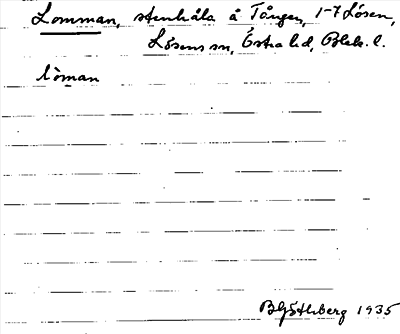 Lomman, stenhåla å Tången, 1-7 Lösen,
Lösens sn, Östra hd, Blek. l.
lòman
B Göthberg 1935